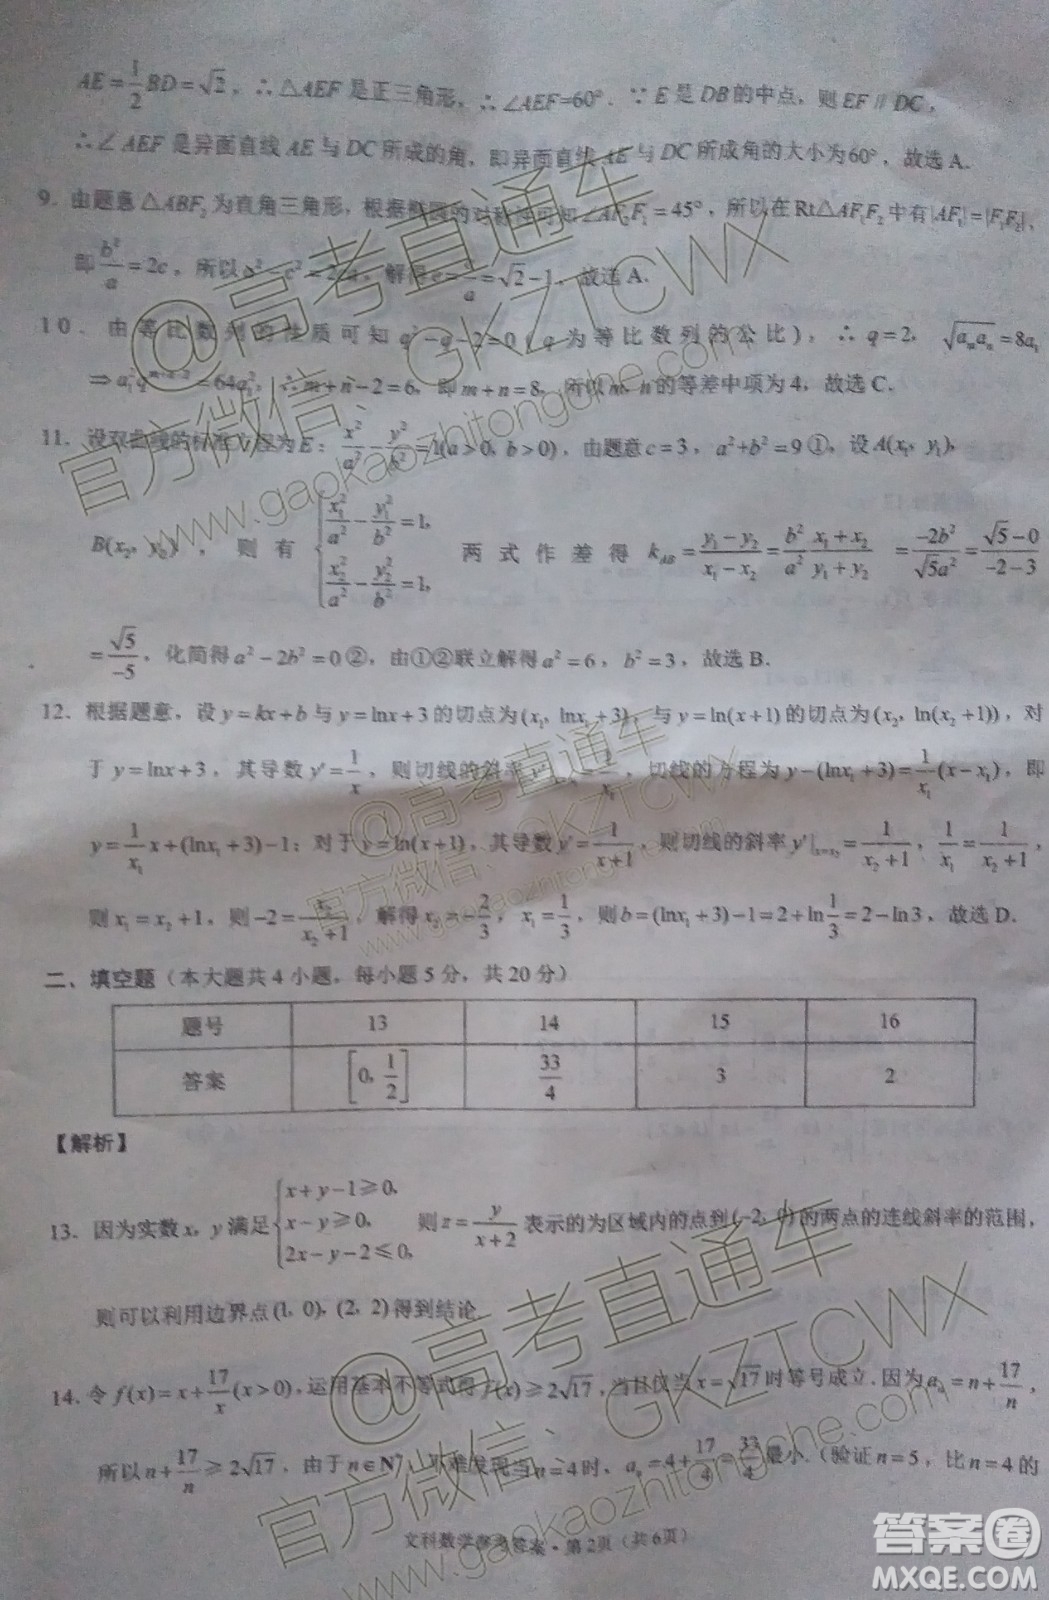 AE=1/2BD=√2，∴△AEF是正三角形，∴∠AEF=60°．∵E是DB的中点，则EF∥DC，
∴∠AEF是异面直线AE与DC所成的角，即异面直线AE与DC所成角的大小为60°，故选A．
9．由题意△ABF₂为直角三角形，根据椭圆的对称性可知∠AF₂F₁=45°，所以在Rt△AF₁F₂中有|AF₁|=|F₁F₂|，
即b²/a=2c，所以a²-c²=2ac，解得e=c/a=√2-1，故选A．
10．由等比数列的性质可知q²-q-2=0（q为等比数列的公比），∴q=2，√(aₘaₙ)=8a₁
⇒a₁²q^(m+n-2)=64a₁²，∴m+n-2=6，即m+n=8，所以m，n的等差中项为4，故选C．
11．设双曲线的标准方程为E：x²/a²-y²/b²=1(a>0，b>0)，由题意c=3，a²+b²=9①，设A(x₁，y₁)，
B(x₂，y₂)，则有{x₁²/a²-y₁²/b²=1，x₂²/a²-y₂²/b²=1，两式作差得k_AB=(y₁-y₂)/(x₁-x₂)=b²/a²·(x₁+x₂)/(y₁+y₂)=-2b²/√5a²=(√5-0)/(-2-3)
=√5/-5，化简得a²-2b²=0②，由①②联立解得a²=6，b²=3，故选B．
12．根据题意，设y=kx+b与y=lnx+3的切点为(x₁，lnx₁+3)，与y=ln(x+1)的切点为(x₂，ln(x₂+1))，对
于y=lnx+3，其导数y′=1/x，则切线的斜率y′|x=x₁=1/x₁，切线的方程为y-(lnx₁+3)=1/x₁(x-x₁)，即
y=1/x₁x+(lnx₁+3)-1；对于y=ln(x+1)，其导数y′=1/(x+1)，则切线的斜率y′|x=x₂=1/(x₂+1)，1/x₁=1/(x₂+1)，
则x₁=x₂+1，则-2=x₂/(x₂+1)，解得x₂=-2/3，x₁=1/3，则b=(lnx₁+3)-1=2+ln1/3=2-ln3，故选D．
二、填空题（本大题共4小题，每小题5分，共20分）
题号 13 14 15 16
答案 [0，1/2] 33/4 3 2
【解析】
13．因为实数x，y满足{x+y-1≥0，x-y≥0，2x-y-2≤0，则z=y/(x+2)表示的为区域内的点到(-2，0)的两点的连线斜率的范围，
则可以利用边界点(1，0)，(2，2)得到结论．
14．令f(x)=x+17/x(x>0)，运用基本不等式得f(x)≥2√17，当且仅当x=√17时等号成立．因为aₙ=n+17/n，
所以n+17/n≥2√17，由于n∈N*，不难发现当n=4时，aₙ=4+17/4=33/4最小．（验证n=5，比n=4的
文科数学参考答案·第2页（共6页）
@高考直通车
官方微信：GKZTCWX
www.gaokaozhitongche.com
@高考直通车
官方微信：GKZTCWX
www.gaokaozhitongche.com
@高考直通车
官方微信：GKZTCWX
www.gaokaozhitongche.com
答案圈
MXQE.COM